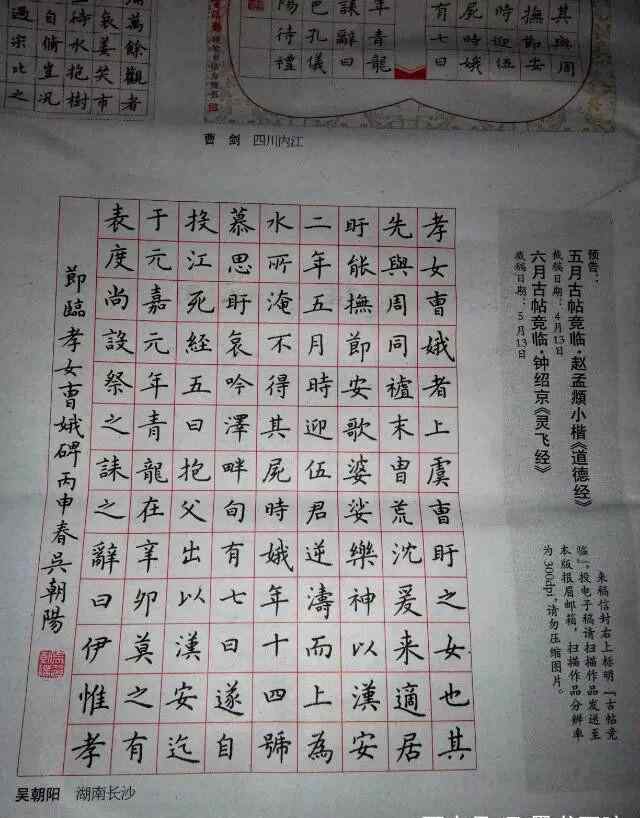 其與周
撫節安
時迎伍
屍時娥
有七日
年青龍
誄辭曰
孔儀
陽待禮
萬餘觀者
姜笑市
待水抱樹
自脩豈況
過宗比之
曹 剑 四川内江
预告：
五月古帖竞临·赵孟頫小楷《道德经》
截稿日期：4月13日
六月古帖竞临·钟绍京《灵飞经》
截稿日期：5月13日
来稿信封右上标明『古帖竞
临』，投电子稿请扫描作品发送至
本版根眉邮箱，扫描作品分辨率
为300dpi，请勿压缩图片。
孝女曹娥者上虞曹盱之女也其
先與周同祖末胄荒沈爰来適居
盱能撫節安歌婆娑樂神以漢安
二年五月時迎伍君逆濤而上為
水所淹不得其屍時娥年十四號
慕思盱哀吟澤畔旬有七日遂自
投江死經五日抱父出以漢安迄
于元嘉元年青龍在辛卯莫之有
表度尚設祭之誄之辭曰伊惟孝
節臨孝女曹娥碑丙申春吳朝陽
吴朝阳 湖南长沙